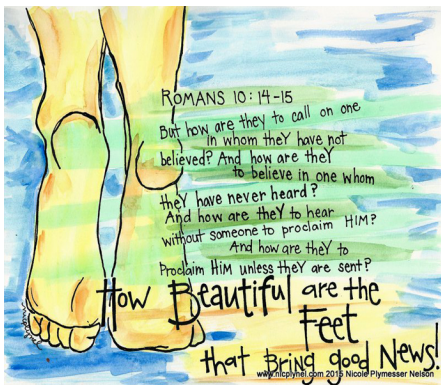 ROMANS 10:14-15
But how are they to call on one
in whom they have not
believed? And how are they
to believe in one whom
they have never heard?
And how are they to hear
without someone to proclaim HIM?
And how are they to
Proclaim HIM unless they are sent?
How Beautiful are the
Feet
that Bring good News!
www.nicplynel.com 2015 Nicole Plymesser Nelson